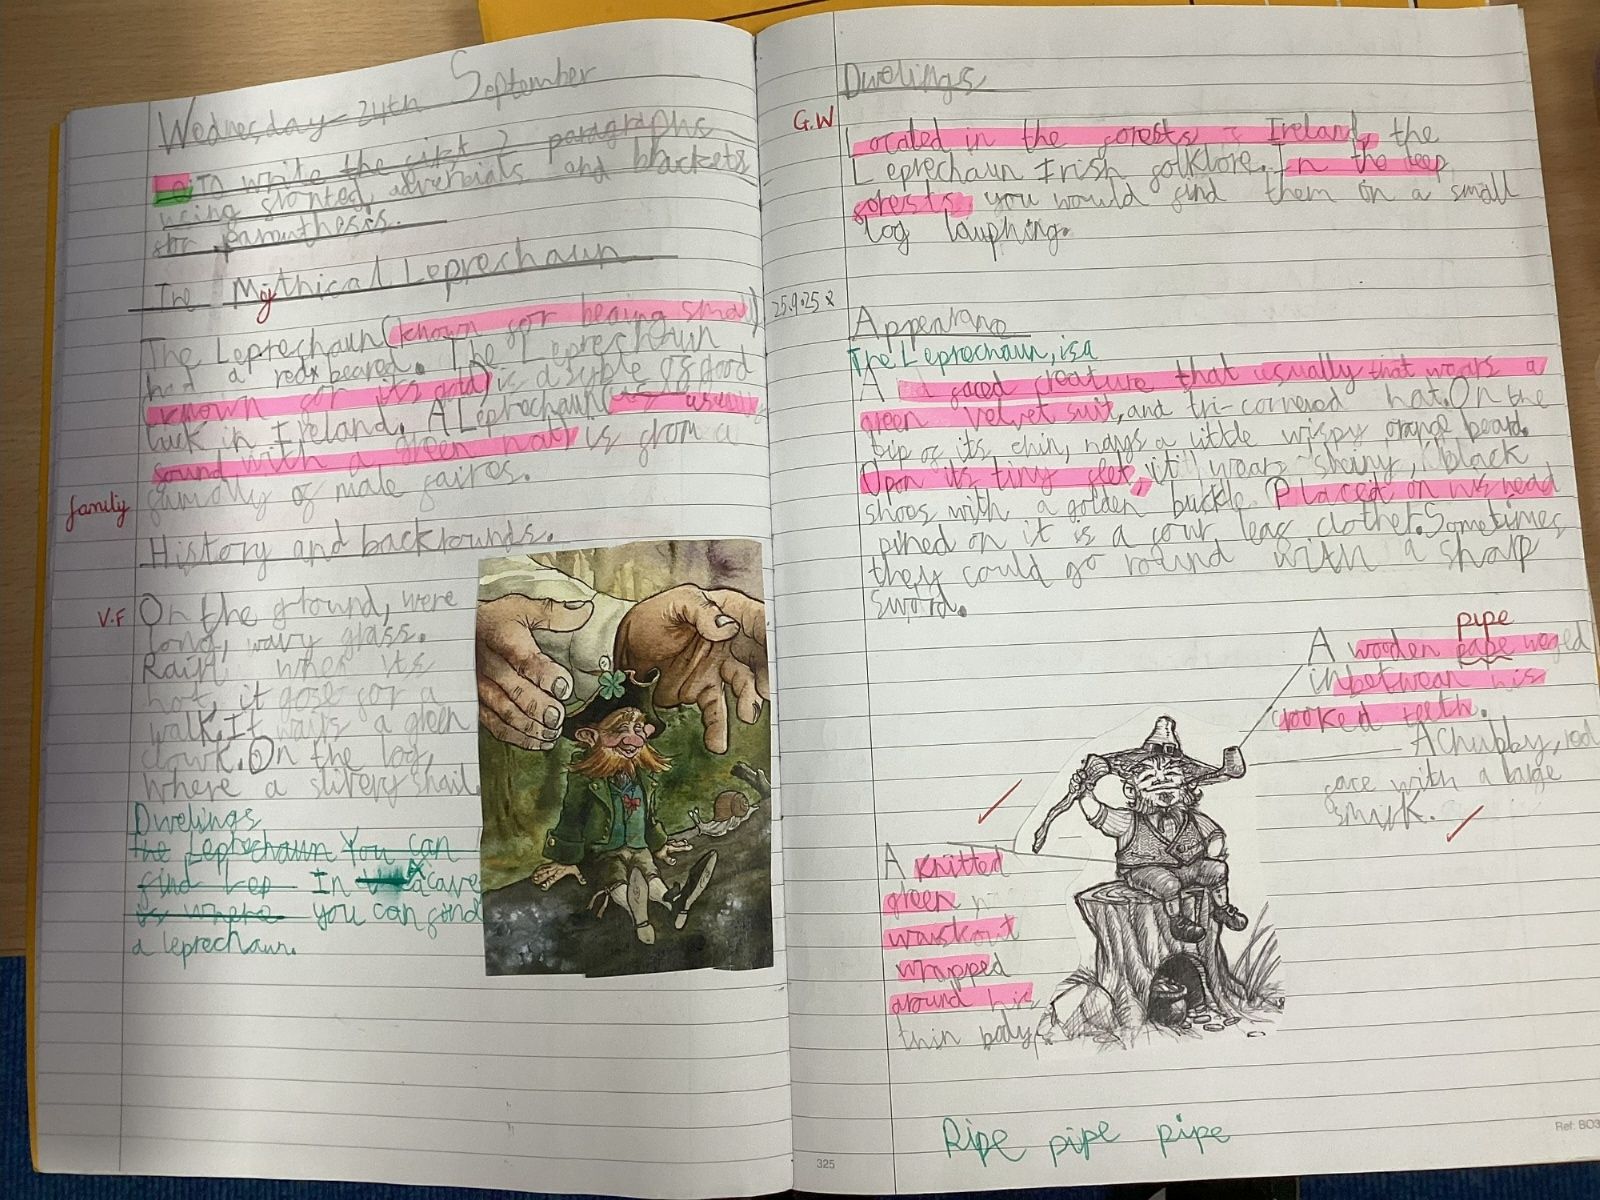 Wednesday 24th September
Lo: To write the first 2 paragraphs
using fronted adverbials and brackets
for paranthesis.
The Mythical Leprechaun
The Leprechaun (known for beaing small)
had a red beared. The Leprechaun
(known for its gold) is a syble of good
luck in Ireland. A Leprechaun
found with a green hat) is from a
family
famolly of male faires.
History and backrounds.
V.F
On the ground, were
long, wavy glass.
when its
hot, it gose for a
walk. It wairs a green
clowk. On the log,
where a slivery snail
Dwelings
the Leprechaun You can
find Lep In a cave
is where you can find
a leprechaun.
Dwelings
G.W
Located in the forests Ireland, the
Leprechaun Irish folklore. In the deep
forests, you would find them on a small
log lauphing.
25.9.25
Appearance
The Leprechaun, is a
A faced creature that usually that wears a
green velvet suit, and tri-cornered hat. On the
tip of its chin, a little wispy orange beard.
Opon its tiny feet, it wears shiny, black
shoes with a golden buckle. Placed on its head
pined on it is a four leaf clother. Sometimes
they could go round with a sharp
sword.
pipe
A wooden pape weged
inbetwean his
crooked teeth.
A chubby, red
face with a large
smirk.
A knitted
green
waskout
wrapped
around his
thin body.
Pipe pipe pipe
325
Ref: BO3